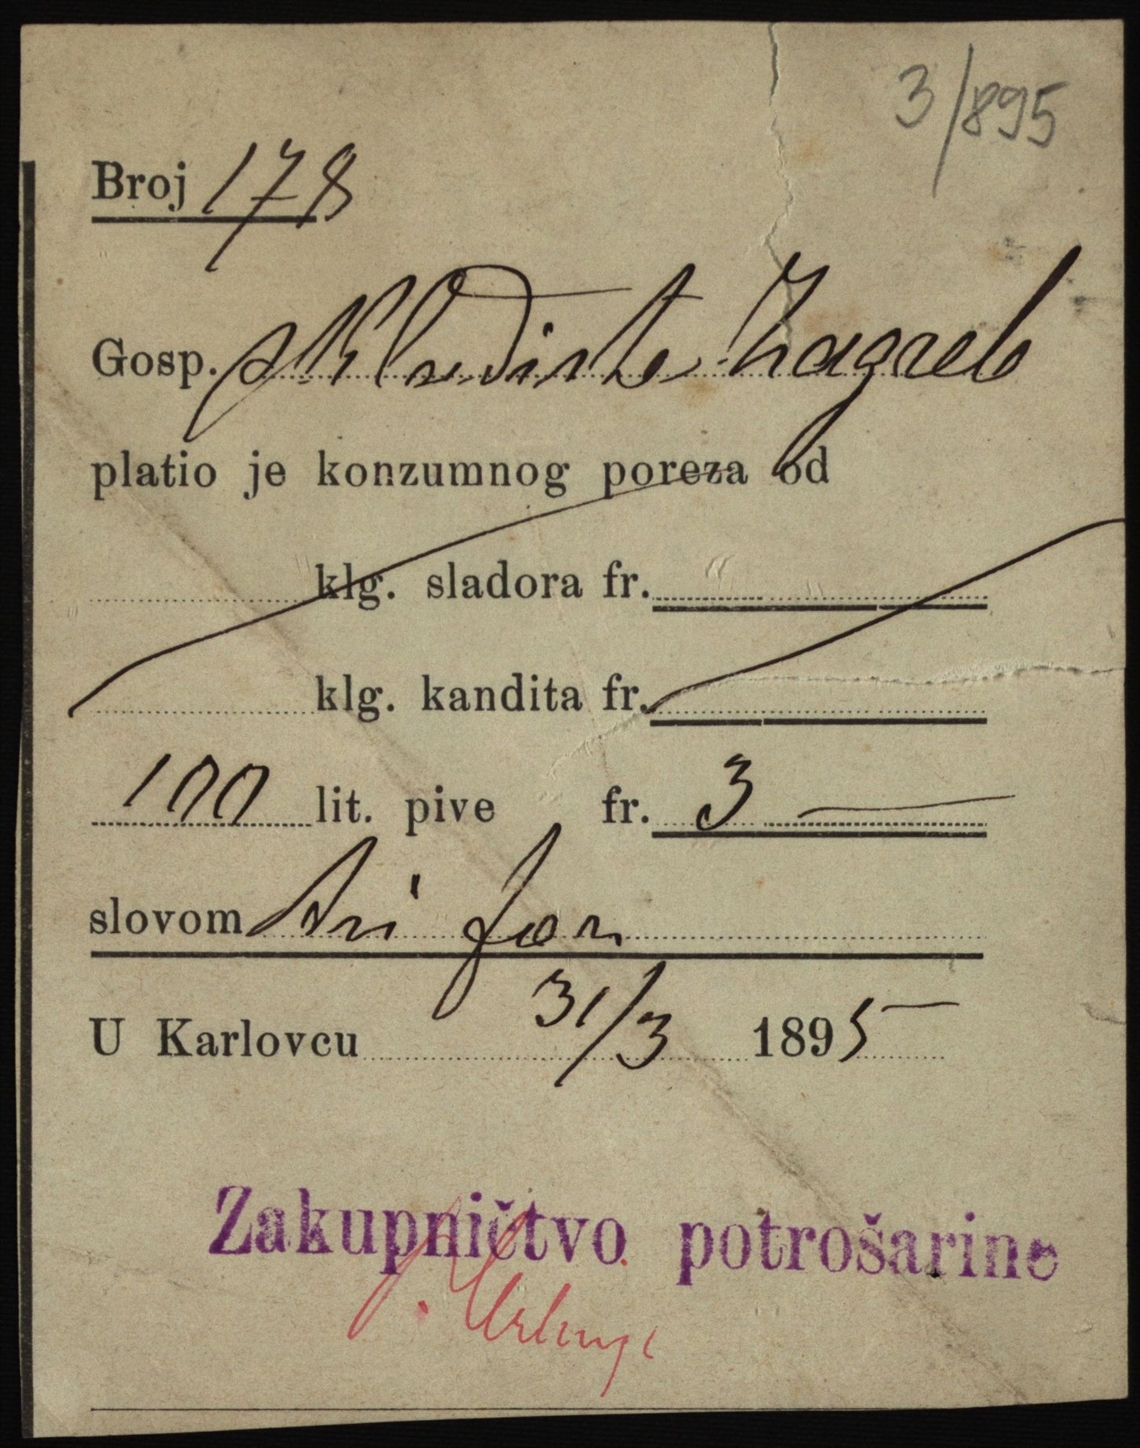 3/895
Broj 178
Gosp. skladište Zagreb
platio je konzumnog poreza od
klg. sladora fr.
klg. kandita fr.
100 lit. pive fr. 3 —
slovom tri for
U Karlovcu 31/3 1895
Zakupničtvo potrošarine